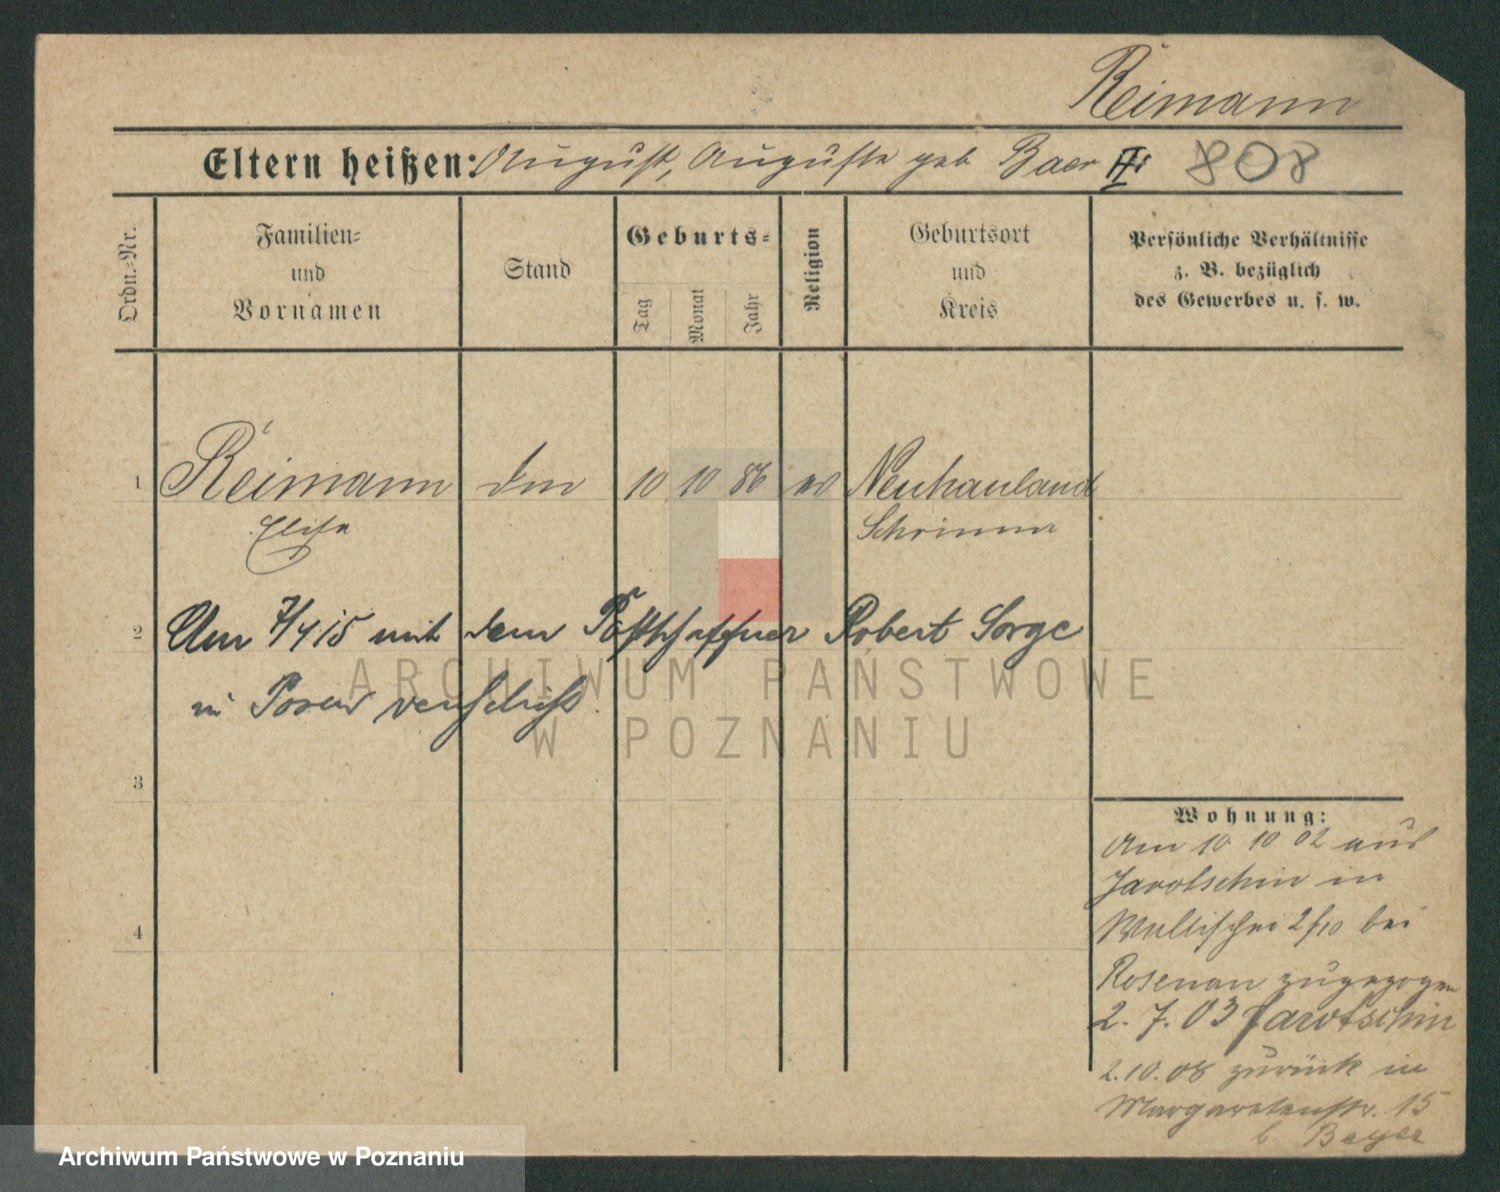 Reimann
Eltern heißen: August, Auguste geb Baer 808
Ordn.-Nr.
Familien-
und
Vornamen
Stand
Geburts-
Tag
Monat
Jahr
Religion
Geburtsort
und
Kreis
Persönliche Verhältnisse
z. B. bezüglich
des Gewerbes u. s. w.
1 Reimann 10 10 86 Neuhauland
Elise Schrimm
2 Am 7/4 15 mit dem Postschaffner Robert Sorge
in Posen verehelicht.
3
4
Wohnung:
Am 10 10 02 aus
Jarotschin in
Wallischei 2/10 bei
Rosenau zugezogen
2. 7. 03 Jarotschin
2.10.08 zurück in
Margaretenstr. 15
b. Beyer
ARCHIWUM PAŃSTWOWE
W POZNANIU
Archiwum Państwowe w Poznaniu